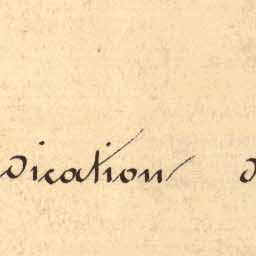 dication d